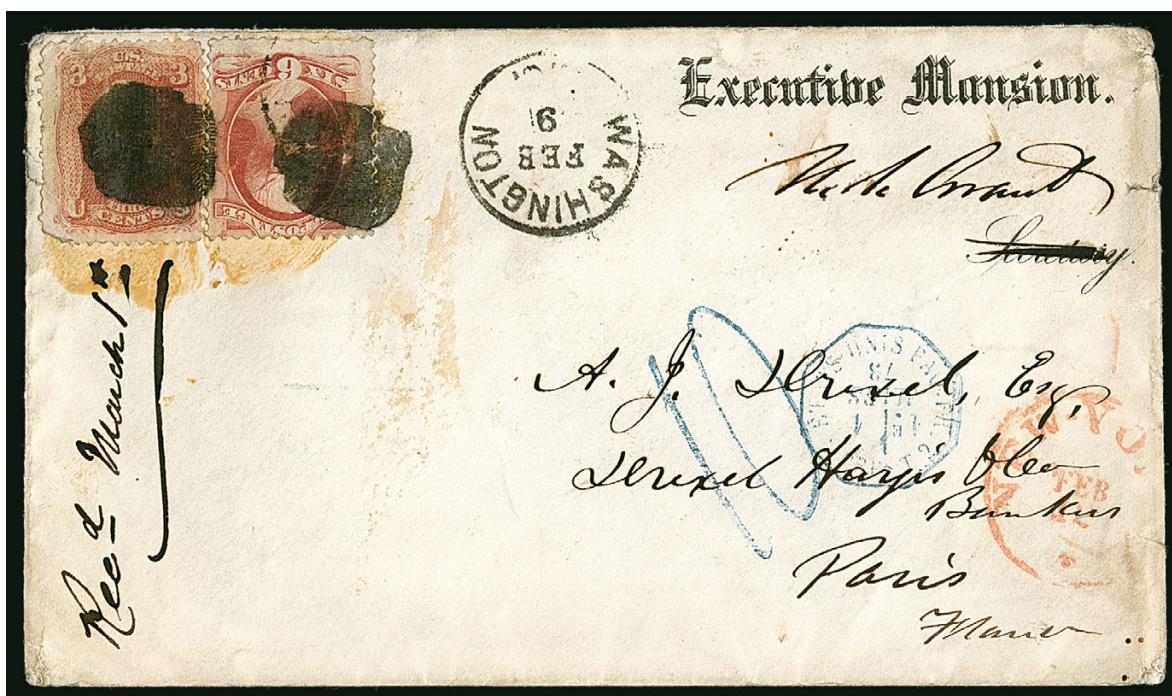 U.S.
3 3
CENTS
SIX 6 CENTS
POSTAGE
WASHINGTON
FEB
9
Executive Mansion.
U.S. Grant
Secretary.
A. J. Drexel, Esq,
Drexel Harjes & Co
Bankers
Paris
France
NEW YO
FEB
22
Rec^d March 1^st